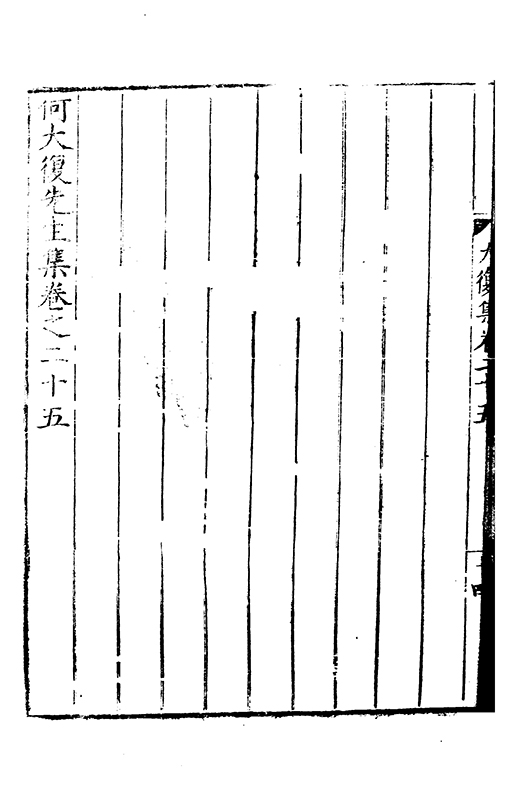 大復集卷二十五
十四
何大復先生集卷之二十五